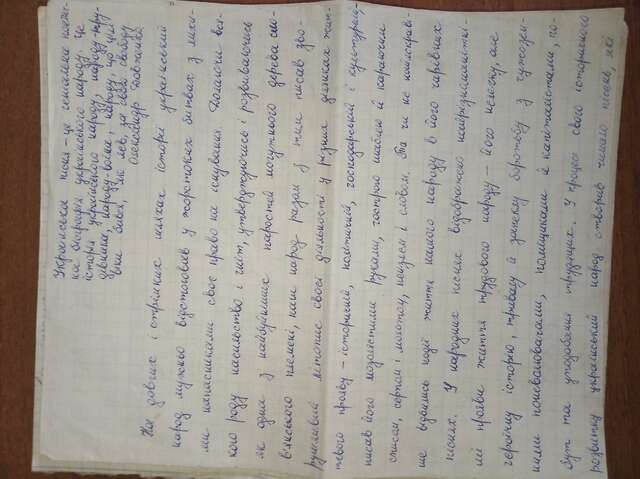 Українська пісня – це геніальна поетич-
на біографія українського народу, це
історія українського народу, народу-тру-
дівника, народу-воїна, народу, що цілі
віки бився, як лев, за свою свободу
Олександр Довженко
На довгих і стрімких шляхах історії український
народ мужньо відстоював у жорстоких битвах з
ми напасниками своє право на існування. Долаючи вся-
кого роду насильство і гніт, утверджуючись і розвиваючись
як один з найбуйніших паростей могутнього дерева сло-
в'янського племені, наш народ разом з тим писав зво-
рушливий літопис своєї діяльності у різних ділянках жит-
тєвого прояву – історичній, політичній, господарській і культурній,
писав його мозолистими руками, гострою шаблею й
списом, серпом і молотом, пензлем і словом. Та чи не найяскраві-
ше відбились події життя нашого народу в його чарівних
піснях. У народних піснях відображено найрізноманітні-
ші прояви життя трудового народу – його нелегку, але
героїчну історію, тривалу й запеклу боротьбу з чужозем-
ними поневолювачами, поміщиками й капіталістами, по-
бут та уподобання трудящих. У процесі свого історичного
розвитку український народ створив чимало пісень, які